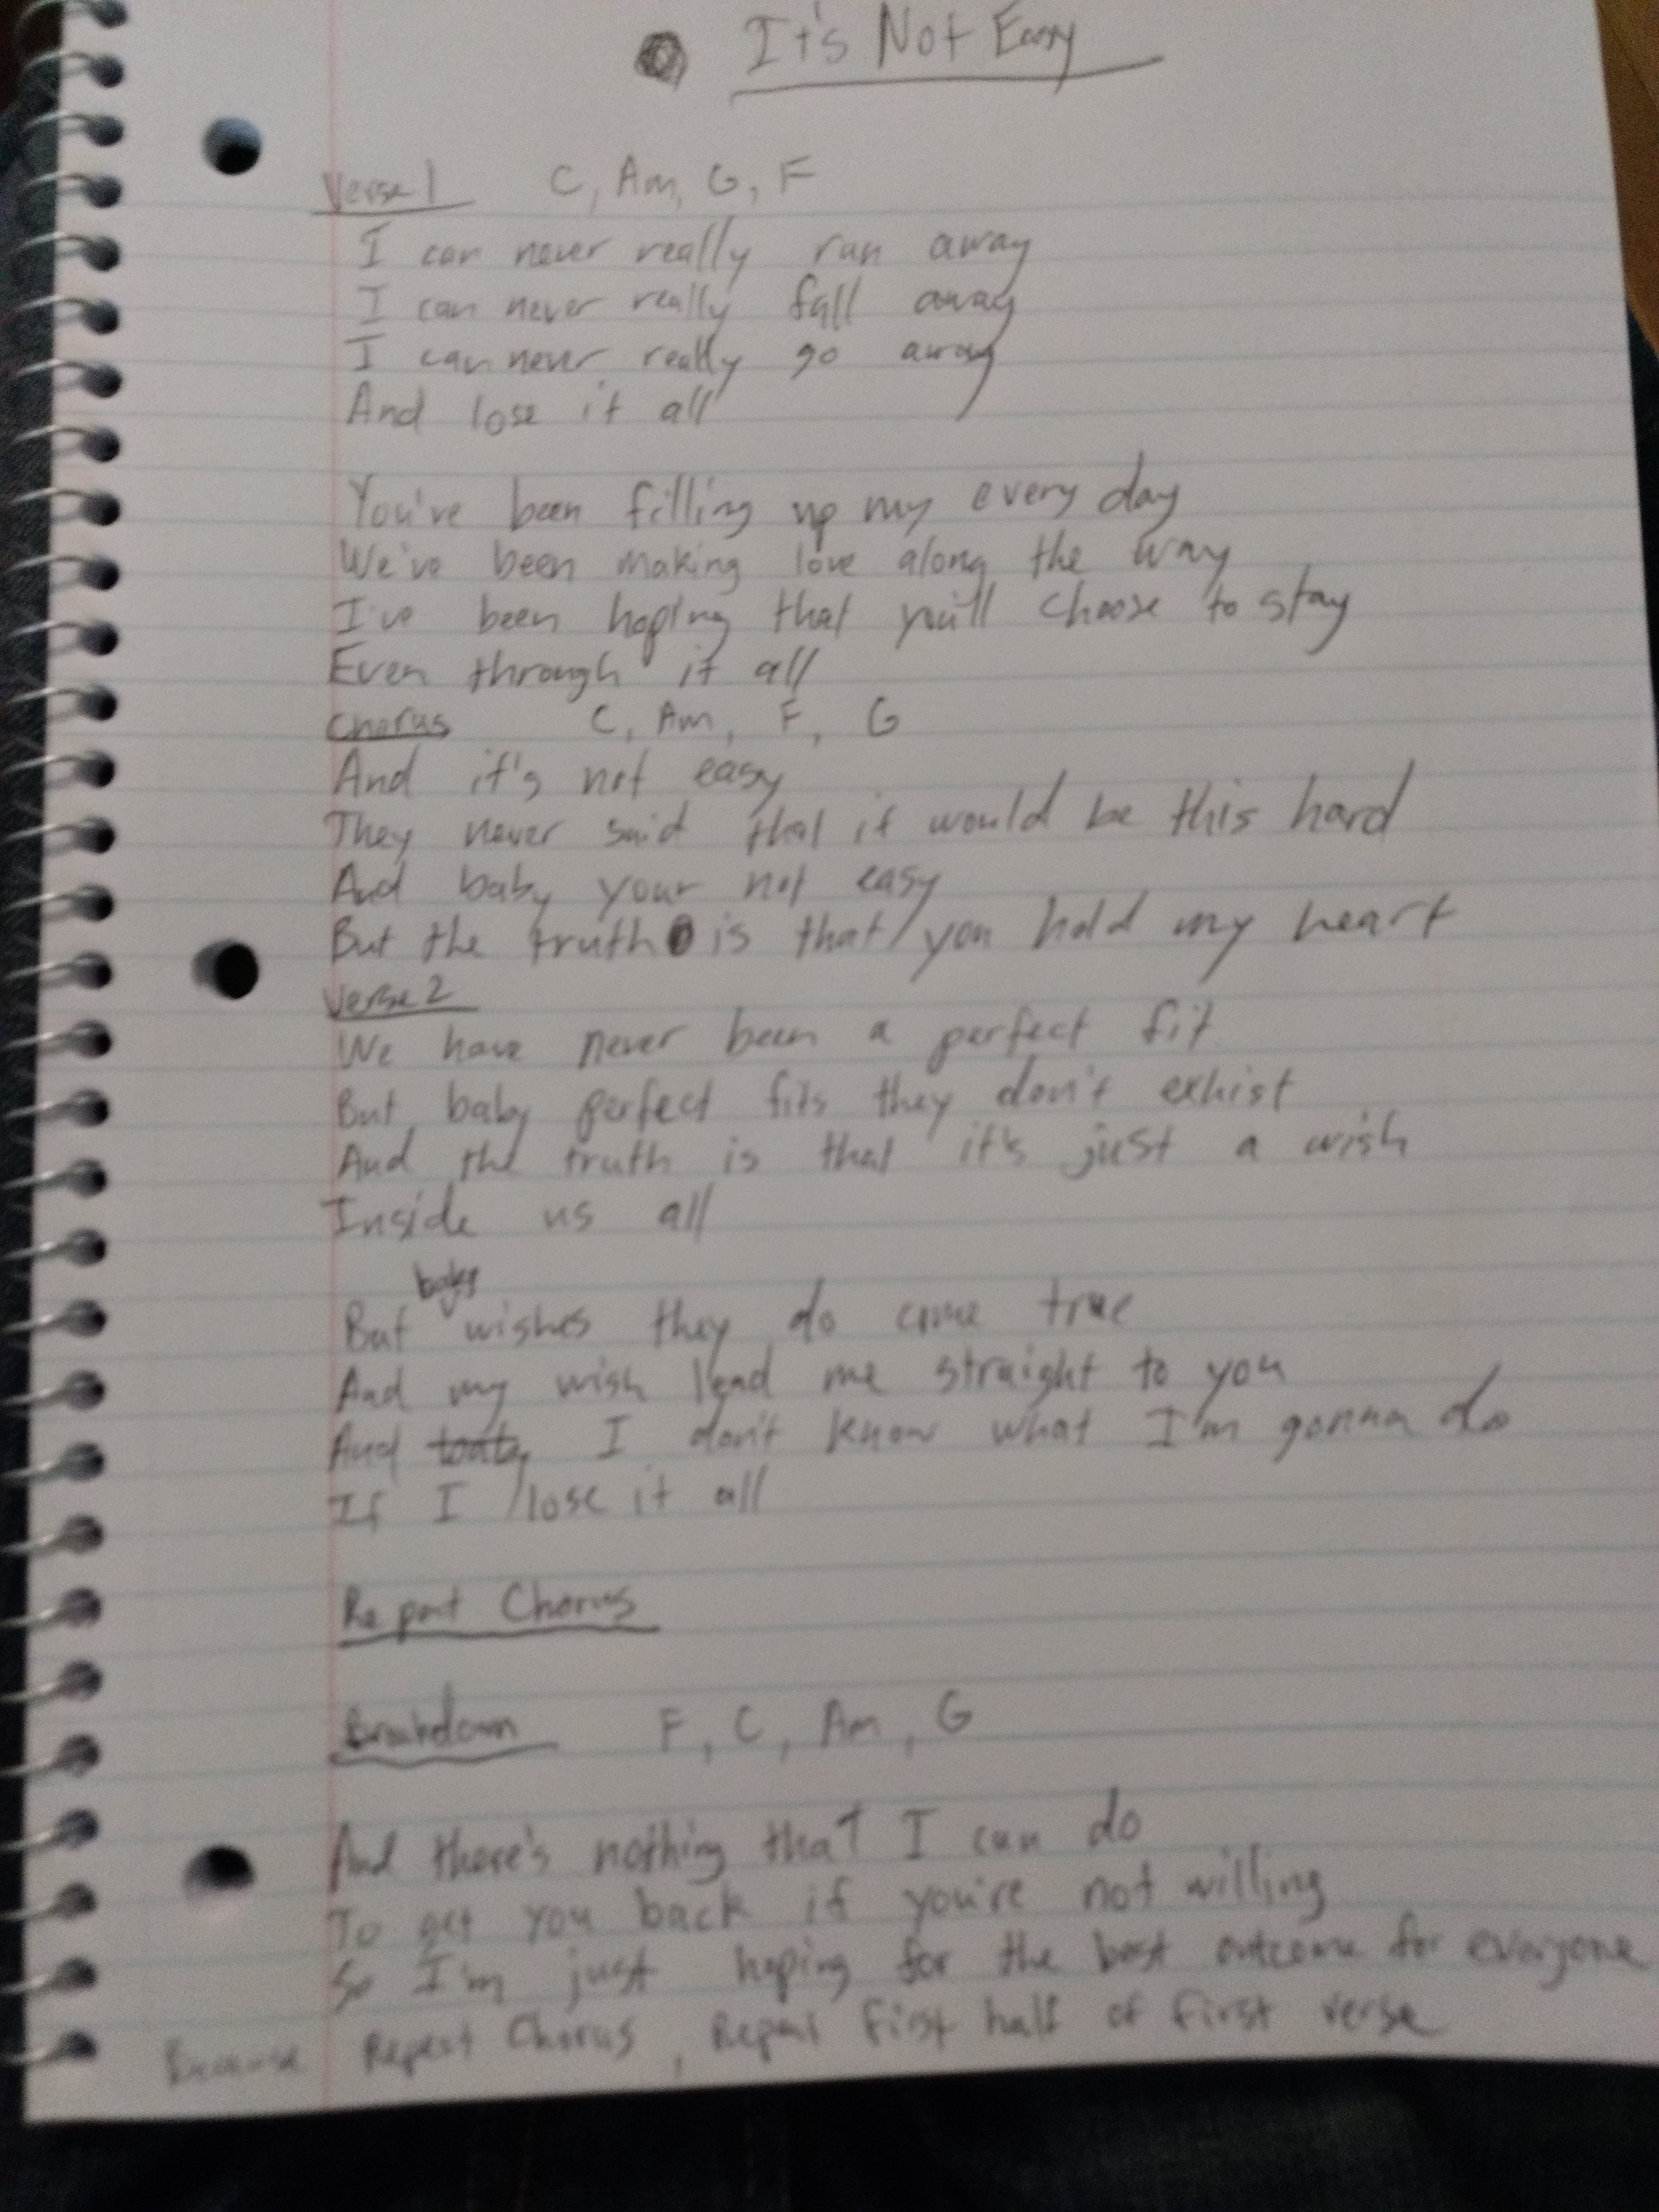 It's Not Easy
Verse 1 C, Am, G, F
I can never really run away
I can never really fall away
I can never really go away
And lose it all
You've been filling up my every day
We've been making love along the way
I've been hoping that you'll choose to stay
Even through it all
Chorus C, Am, F, G
And it's not easy
They never said that it would be this hard
And baby your not easy
But the truth is that you hold my heart
Verse 2
We have never been a perfect fit
But baby perfect fits they don't exhist
And the truth is that it's just a wish
Inside us all
baby
But wishes they do come true
And my wish lead me straight to you
And I don't know what I'm gonna do
If I lose it all
Repeat Chorus
Breakdown F, C, Am, G
And there's nothing that I can do
To get you back if you're not willing
So I'm just hoping for the best outcome for everyone
Because Repeat Chorus, Repeat first half of first verse